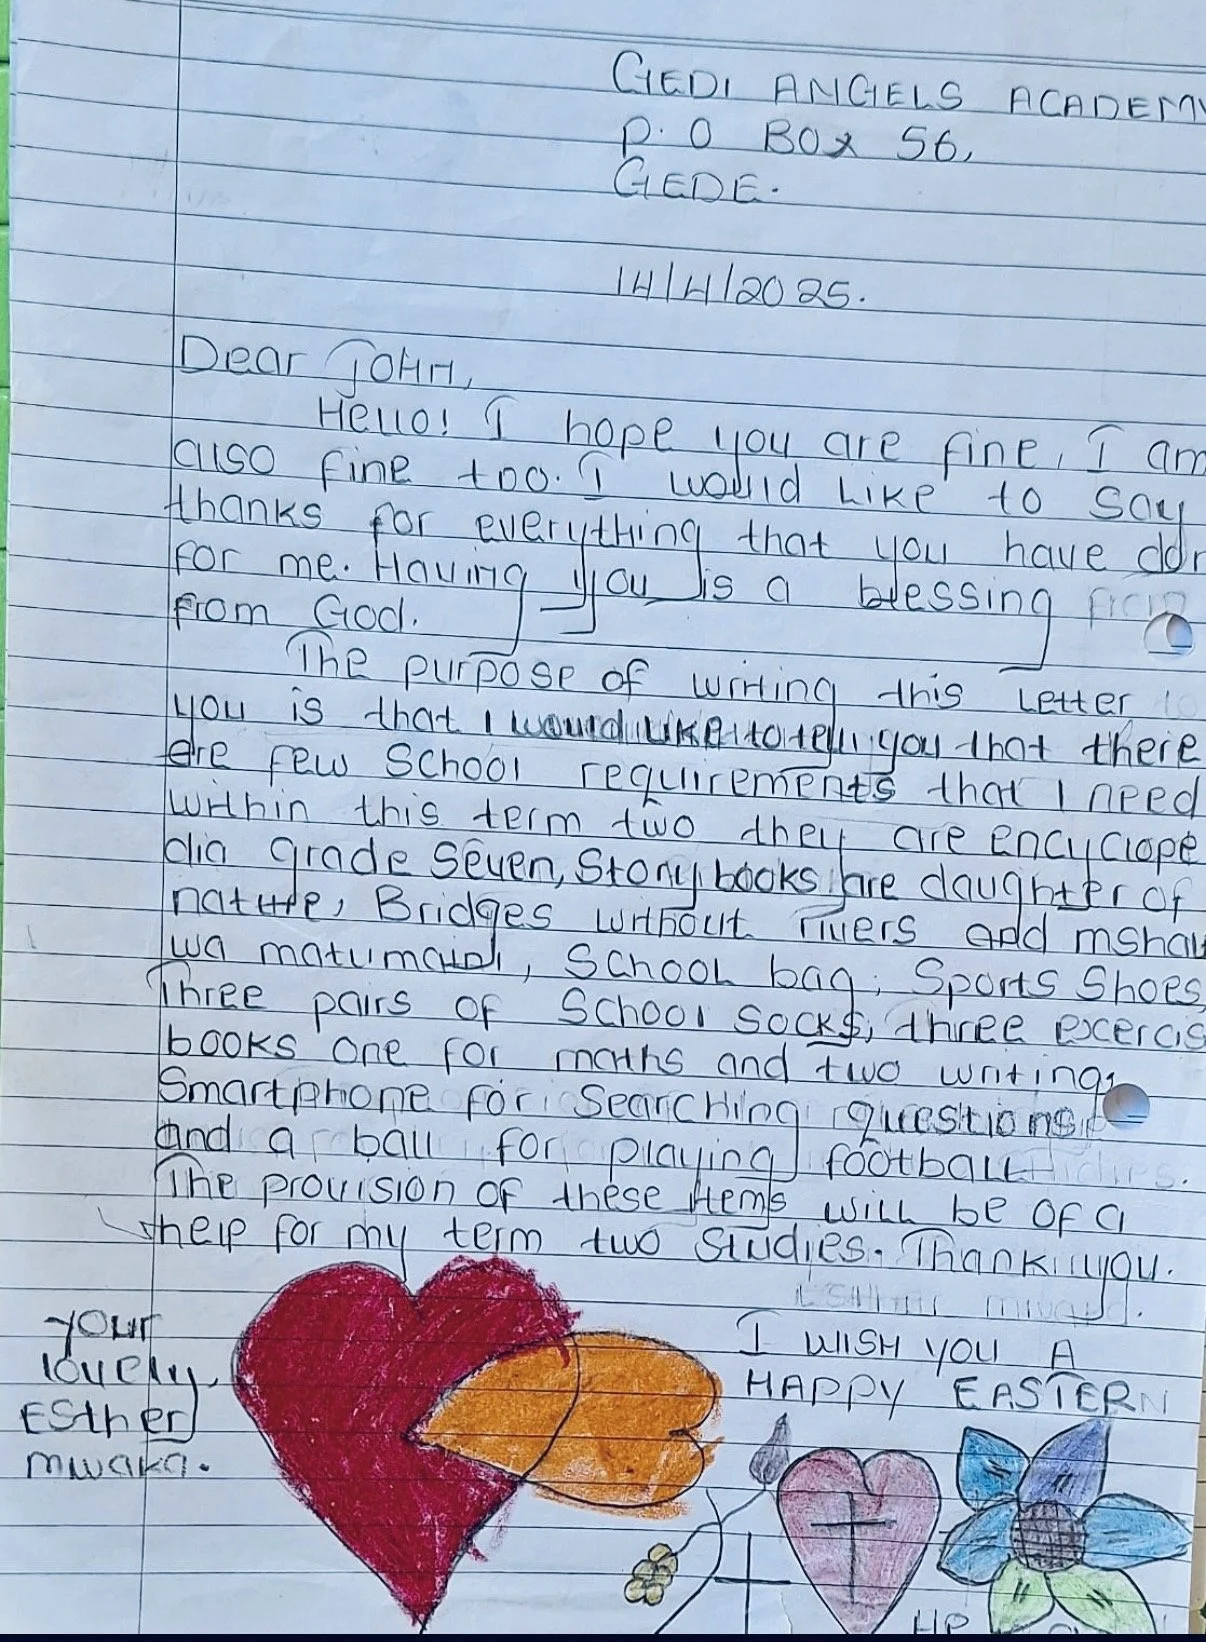 GEDI ANGELS ACADEMY
P.O BOX 56,
GEDE.
14/4/2025.
Dear JOHN,
Hello! I hope you are fine, I am
also fine too. I would like to say
thanks for everything that you have don
for me. Having you is a blessing from
from God.
The purpose of writing this letter to
you is that I would like to tell you that there
are few school requirements that I need
within this term two they are encyclope
dia grade seven, Story books are daughter of
nature, Bridges without rivers and mshal
wa matumaini, School bag, Sports Shoes,
Three pairs of School socks, three excercis
books one for maths and two writing,
Smartphone for searching questions
and a ball for playing football
The provision of these items will be of a
help for my term two studies. Thank you.
Esther mwaka.
your
lovely,
Esther
mwaka.
I WISH YOU A
HAPPY EASTERN